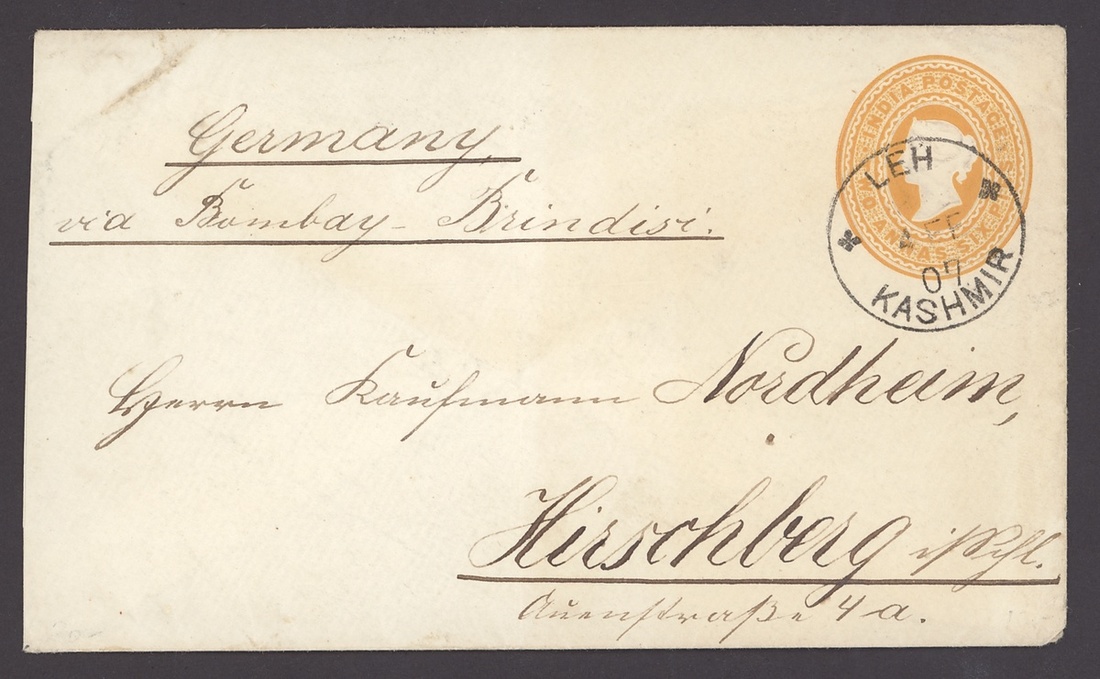 Germany
via Bombay - Brindisi.
INDIA POSTAGE
LEH
07
KASHMIR
Herrn Kaufmann Nordheim,
Hirschberg i/Schl.
Auenstraße 4 a.